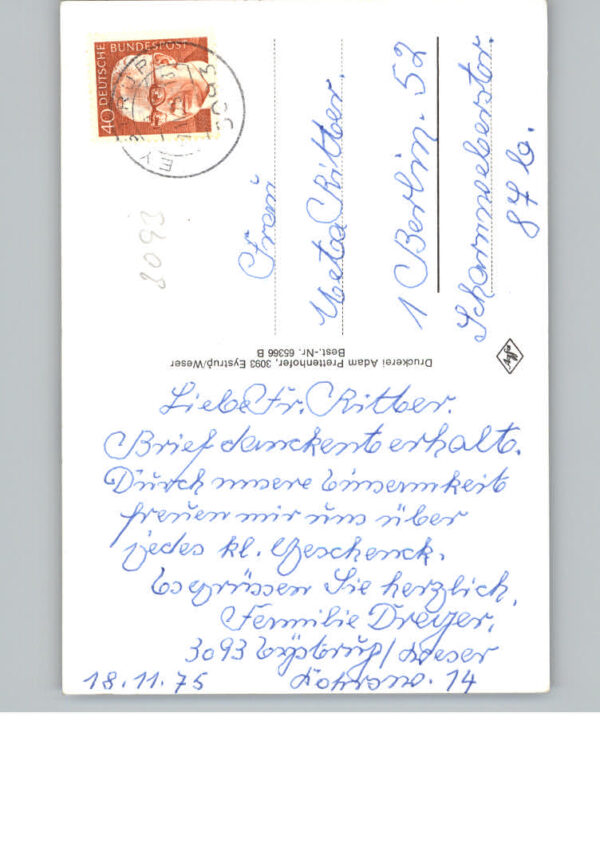 40 DEUTSCHE BUNDESPOST
EYSTRUP
3093
3093
Frau
Meta Ritter.
1 Berlin. 52
Scharnweberstr.
87 b.
Druckerei Adam Prettenhofer, 3093 Eystrup/Weser
Best.-Nr. 65366 B
Agfa
Liebe Fr. Ritter.
Brief danckent erhalt.
Durch unsere Einsamkeit
freuen wir uns über
jedes kl. Geschenck.
Es grüssen Sie herzlich,
Familie Dreyer,
3093 Eystrup/Weser
18.11.75 14